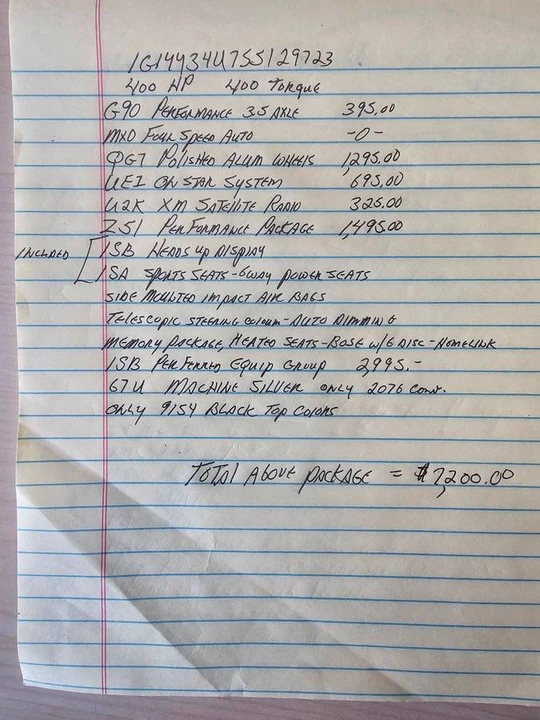 1G1YY34U755129723
400 HP 400 Torque
G90 PERFORMANCE 3.5 AXLE 395.00
MX0 FOUR SPEED AUTO -0-
QG7 POLISHED ALUM WHEELS 1,295.00
UE1 ON STAR SYSTEM 695.00
U2K XM SATELLITE RADIO 325.00
Z51 PERFORMANCE PACKAGE 1,495.00
INCLUDED [ 1SB HEADS UP DISPLAY
1SA SPORTS SEATS-6WAY POWER SEATS
SIDE MOUNTED IMPACT AIR BAGS
TELESCOPIC STEERING COLUMN-AUTO DIMMING
MEMORY PACKAGE, HEATED SEATS-BOSE W/6 DISC-HOMELINK
1SB PERFERRED EQUIP GROUP 2995.-
67U MACHINE SILVER ONLY 2076 CONV.
ONLY 9154 BLACK TOP COLORS
TOTAL ABOVE PACKAGE = $7,200.00